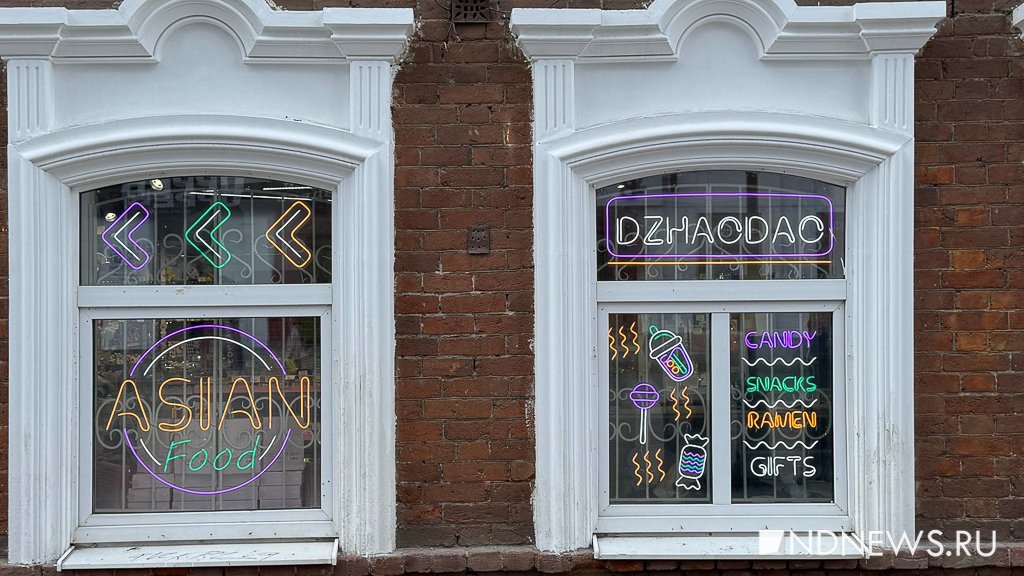 ASIAN
Food
DZHAODAO
CANDY
SNACKS
RAMEN
GIFTS
NDNEWS.RU